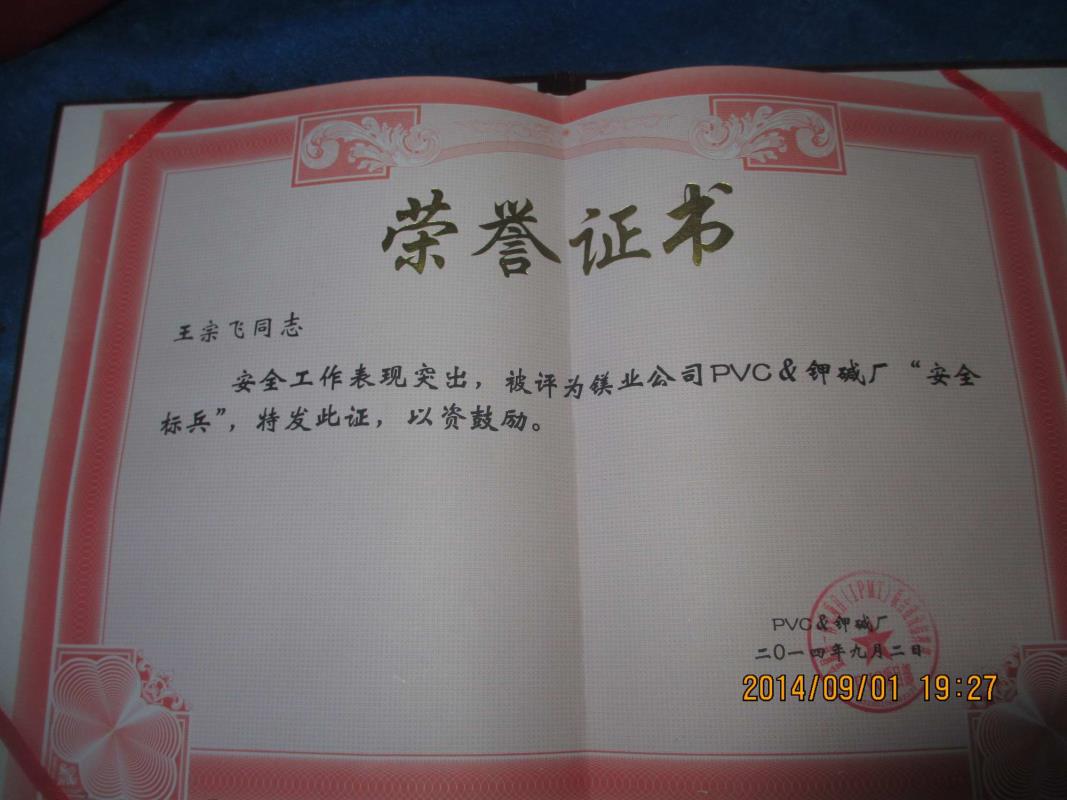 荣誉证书
王宗飞同志
安全工作表现突出，被评为镁业公司PVC&钾碱厂“安全
标兵”，特发此证，以资鼓励。
PVC&钾碱厂
二〇一四年九月二日
2014/09/01 19:27